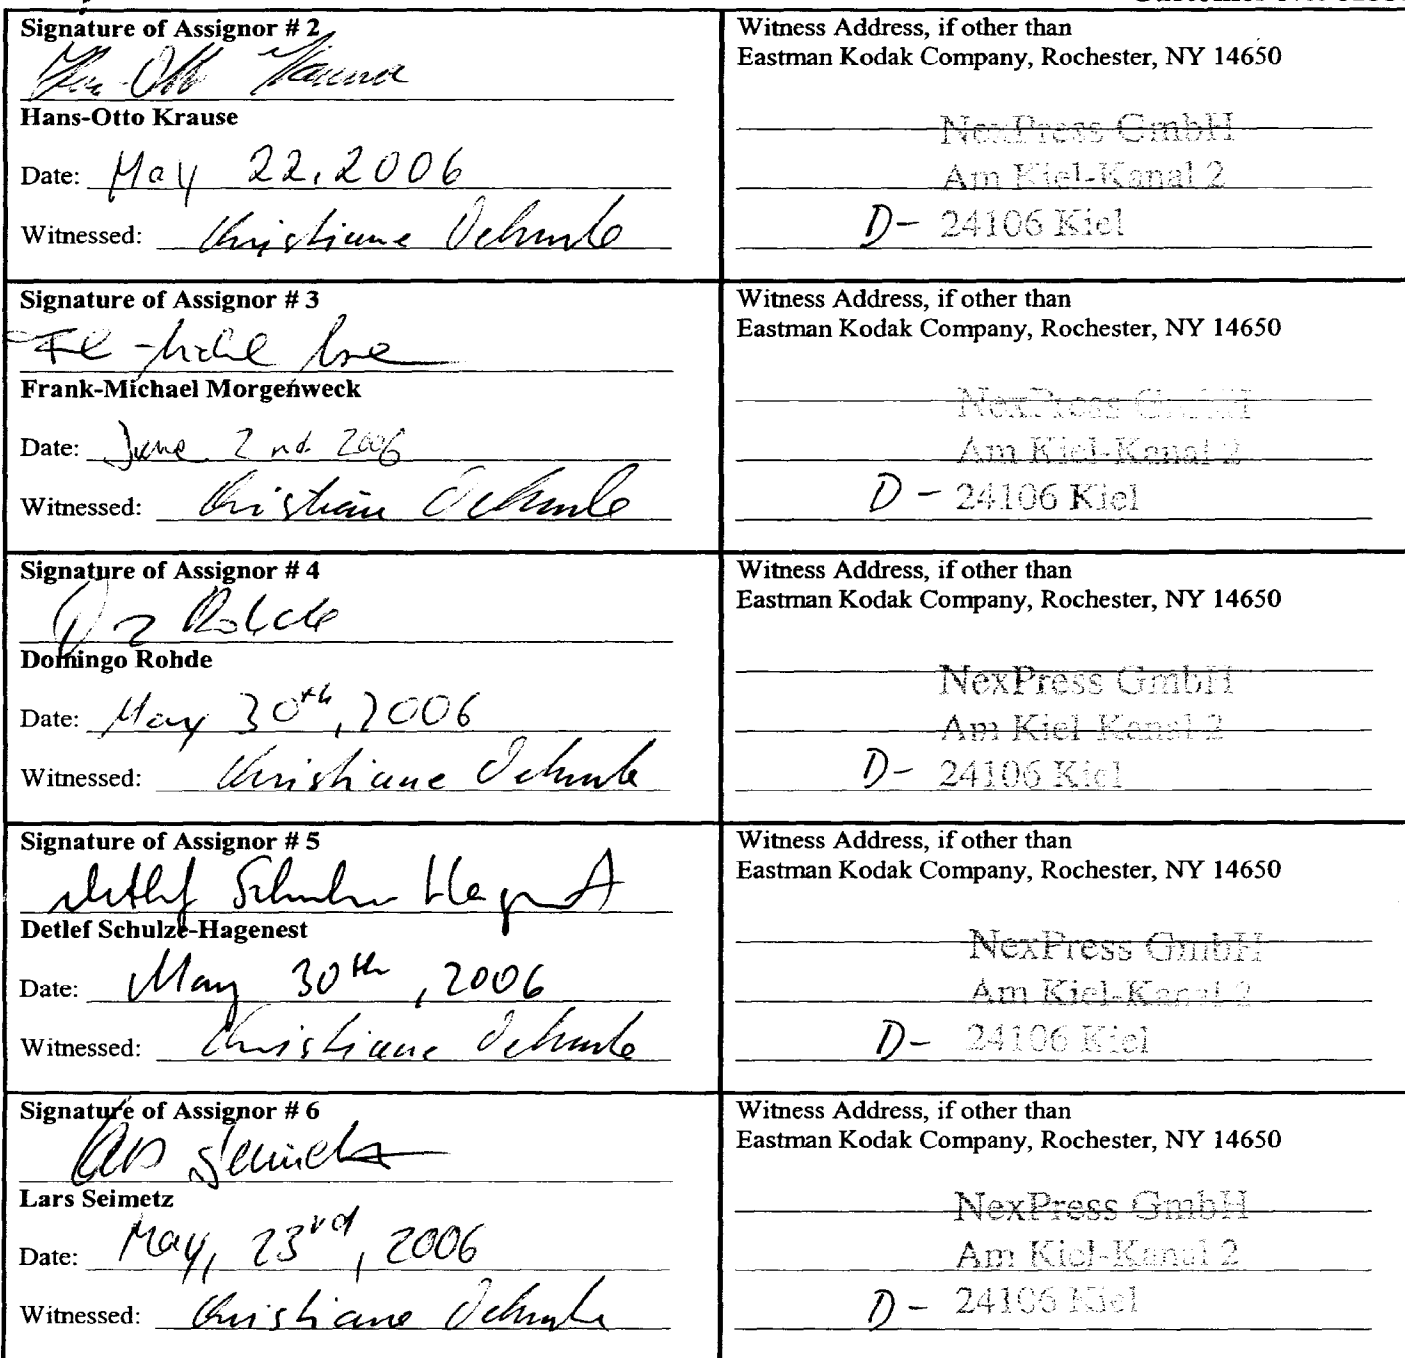 Signature of Assignor # 2
Hans-Otto Krause
Date: May 22, 2006
Witnessed: Christiane
Witness Address, if other than
Eastman Kodak Company, Rochester, NY 14650
NexPress GmbH
Am Kiel-Kanal 2
D- 24106 Kiel
Signature of Assignor # 3
Frank-Michael Morgenweck
Date: June 2nd 2006
Witnessed: Christiane
Witness Address, if other than
Eastman Kodak Company, Rochester, NY 14650
NexPress GmbH
Am Kiel-Kanal 2
D - 24106 Kiel
Signature of Assignor # 4
Domingo Rohde
Date: May 30th, 2006
Witnessed: Christiane
Witness Address, if other than
Eastman Kodak Company, Rochester, NY 14650
NexPress GmbH
Am Kiel-Kanal 2
D- 24106 Kiel
Signature of Assignor # 5
Detlef Schulze-Hagenest
Detlef Schulze-Hagenest
Date: May 30th, 2006
Witnessed: Christiane
Witness Address, if other than
Eastman Kodak Company, Rochester, NY 14650
NexPress GmbH
Am Kiel-Kanal 2
D- 24106 Kiel
Signature of Assignor # 6
Lars Seimetz
Lars Seimetz
Date: May, 23rd, 2006
Witnessed: Christiane
Witness Address, if other than
Eastman Kodak Company, Rochester, NY 14650
NexPress GmbH
Am Kiel-Kanal 2
D - 24106 Kiel